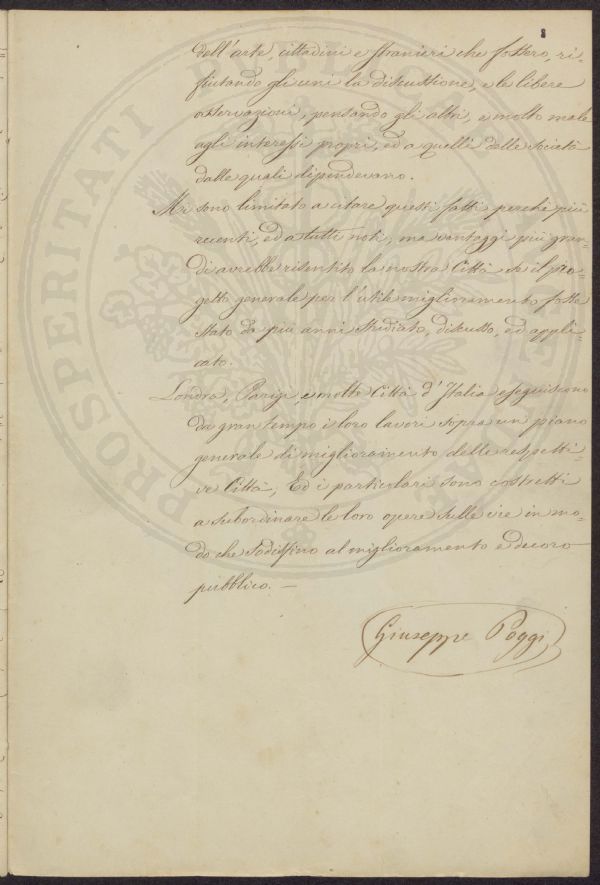 8
dell'arte, cittadini e stranieri che fossero, ri-
fiutando gli uni la discussione, e le libere
osservazioni, pensando gli altri, e molto male
agli interessi propri, ed a quelli delle Società
dalle quali dipendevano.
Mi sono limitato a citare questi fatti perchè più
recenti, ed a tutti noti, ma vantaggi più gran-
di avrebbe risentito la nostra Città se il pro-
getto generale per l'utile miglioramento fosse
stato da più anni studiato, discusso, ed appli-
cato.
Londra, Parigi, e molte Città d'Italia eseguiscono
da gran tempo i loro lavori sopra un piano
generale di miglioramento delle respetti-
ve Città; Ed i particolari sono costretti
a subordinare le loro opere sulle vie in mo-
do che sodisfino al miglioramento e decoro
pubblico. —
Giuseppe Poggi
PROSPERITATI